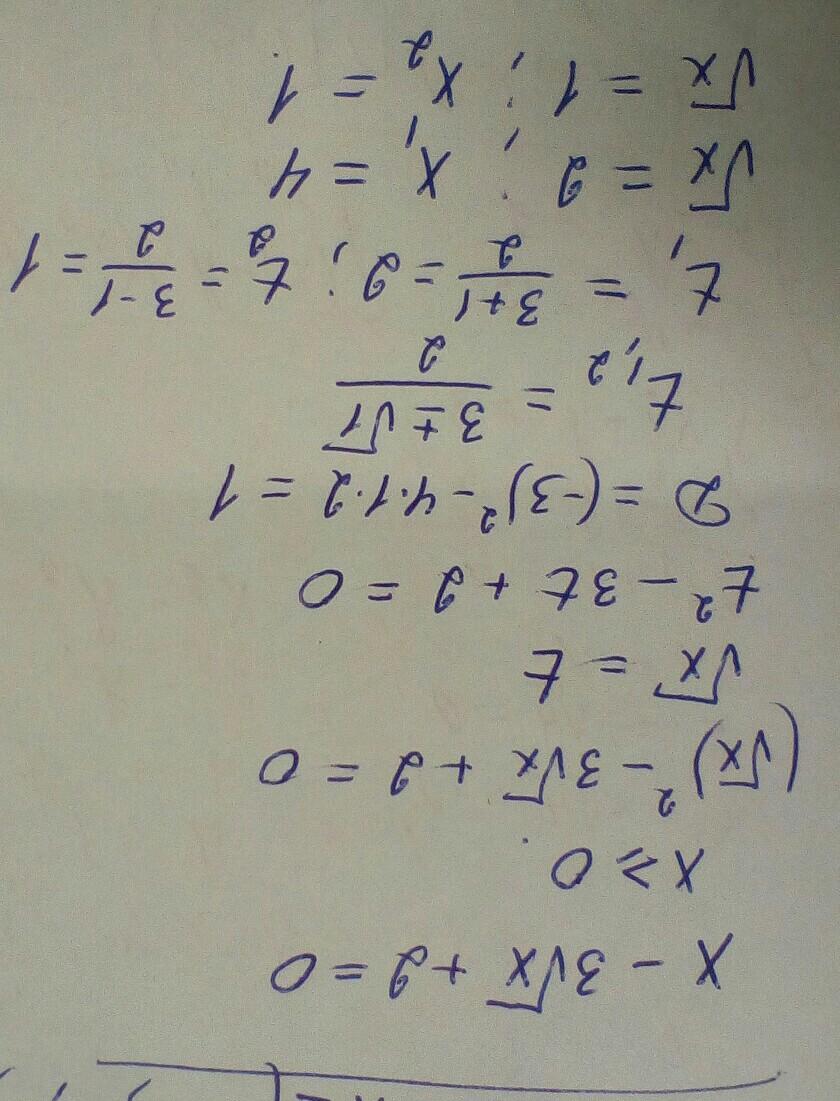 x - 3√x + 2 = 0
x ≥ 0
(√x)² - 3√x + 2 = 0
√x = t
t² - 3t + 2 = 0
D = (-3)² - 4·1·2 = 1
t₁,₂ = (3 ± √1)/2
t₁ = (3+1)/2 = 2; t₂ = (3-1)/2 = 1
√x = 2; x₁ = 4
√x = 1; x₂ = 1